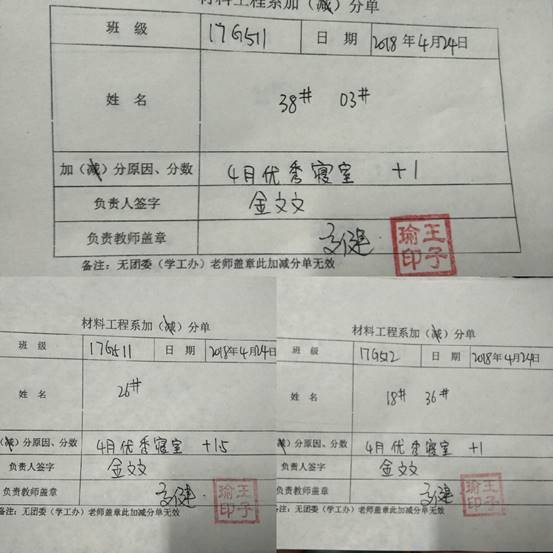 材料工程系加（减）分单
班 级 17G511 日 期 2018年4月24日
姓 名 38# 03#
加（减）分原因、分数 4月优秀寝室 +1
负责人签字 金文文
负责教师盖章
王子瑜印
备注：无团委（学工办）老师盖章此加减分单无效
材料工程系加（减）分单
班 级 17G511 日 期 2018年4月24日
姓 名 26#
减）分原因、分数 4月优秀寝室 +1.5
负责人签字 金文文
负责教师盖章
王子瑜印
备注：无团委（学工办）老师盖章此加减分单无效
材料工程系加（减）分单
班 级 17G512 日 期 2018年4月24日
姓 名 18# 36#
减）分原因、分数 4月优秀寝室 +1
负责人签字 金文文
负责教师盖章
王子瑜印
备注：无团委（学工办）老师盖章此加减分单无效